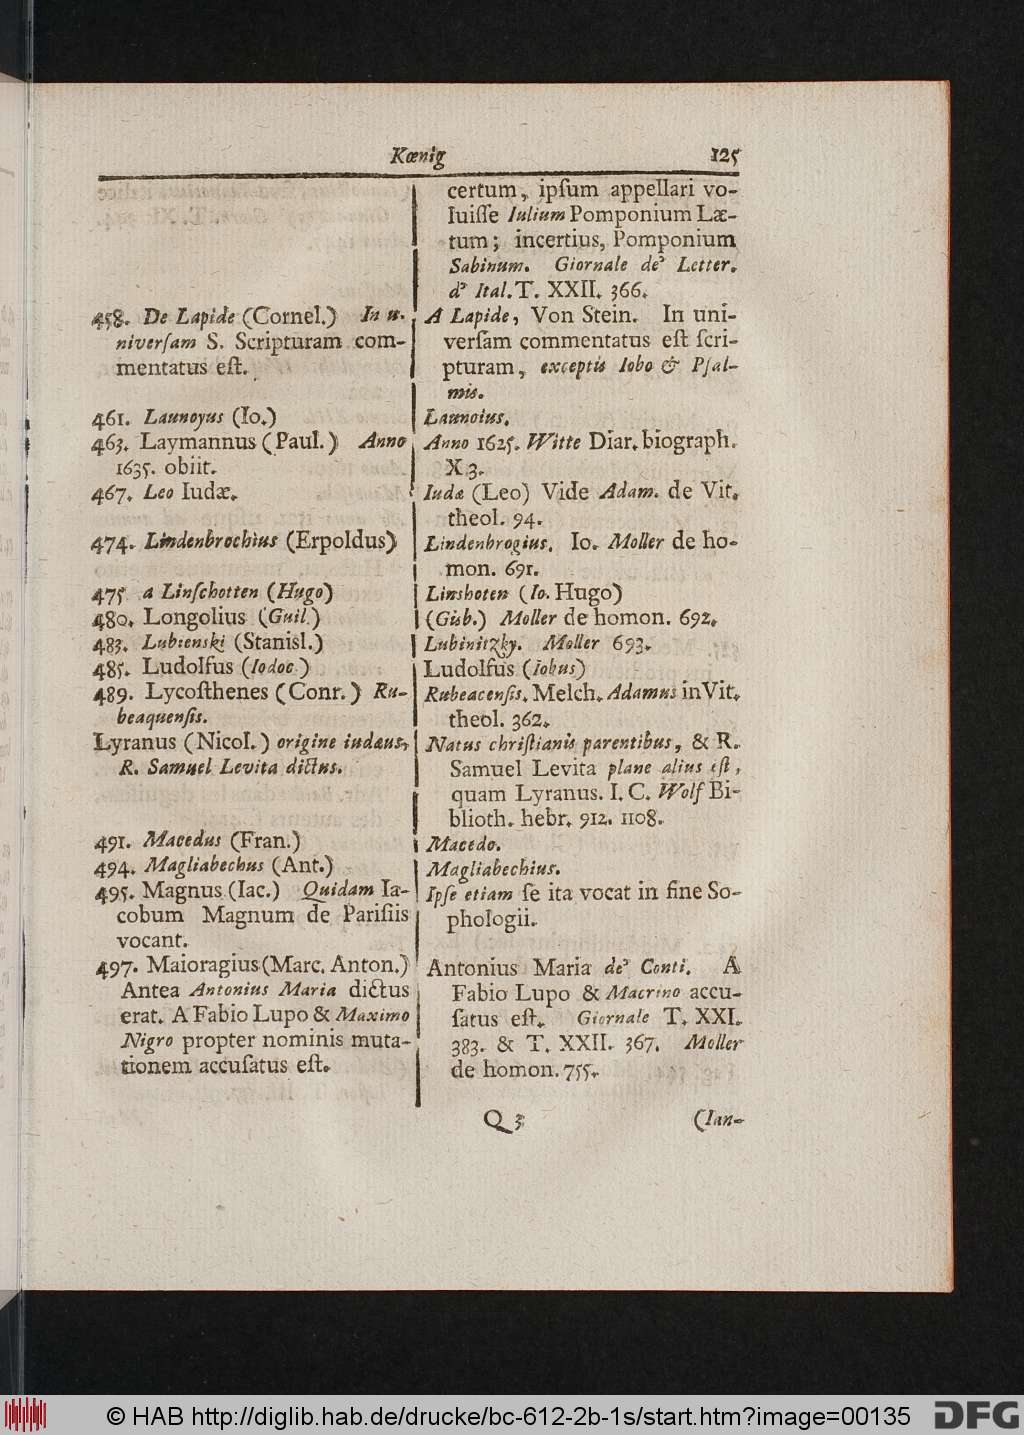 Kœnig 125
certum, ipſum appellari vo-
luiſſe Iulium Pomponium Læ-
tum; incertius, Pomponium
Sabinum. Giornale de' Letter.
d' Ital. T. XXII. 366.
458. De Lapide (Cornel.) In u-
niverſam S. Scripturam com-
mentatus eſt.
A Lapide, Von Stein. In uni-
verſam commentatus eſt ſcri-
pturam, exceptis Iobo & Pſal-
mis.
461. Launoyus (Io.)
Launoius.
463. Laymannus (Paul.) Anno
1635. obiit.
Anno 1625. Witte Diar. biograph.
X 3.
467. Leo Iudæ.
Iudæ (Leo) Vide Adam. de Vit.
theol. 94.
474. Lindenbrochius (Erpoldus)
Lindenbrogius. Io. Moller de ho-
mon. 691.
475 a Linſchotten (Hugo)
Linshoten (Io. Hugo)
480. Longolius (Guil.)
(Gisb.) Moller de homon. 692.
483. Lubienski (Stanisl.)
Lubinitzky. Moller 693.
485. Ludolfus (Iodoc.)
Ludolfus (Iobus)
489. Lycoſthenes (Conr.) Ru-
beaquenſis.
Rubeacenſis. Melch. Adamus in Vit.
theol. 362.
Lyranus (Nicol.) origine iudæus,
R. Samuel Levita dictus.
Natus chriſtianis parentibus, & R.
Samuel Levita plane alius eſt,
quam Lyranus. I. C. Wolf Bi-
blioth. hebr. 912. 1108.
491. Macedus (Fran.)
Macedo.
494. Magliabechus (Ant.)
Magliabechius.
495. Magnus (Iac.) Quidam Ia-
cobum Magnum de Pariſiis
vocant.
Ipſe etiam ſe ita vocat in fine So-
phologii.
497. Maioragius (Marc. Anton.)
Antea Antonius Maria dictus
erat. A Fabio Lupo & Maximo
Nigro propter nominis muta-
tionem accuſatus eſt.
Antonius Maria de' Conti. A
Fabio Lupo & Macrino accu-
ſatus eſt. Giornale T. XXI.
383. & T. XXII. 367. Moller
de homon. 755.
Q 3 (Ian-
© HAB http://diglib.hab.de/drucke/bc-612-2b-1s/start.htm?image=00135 DFG